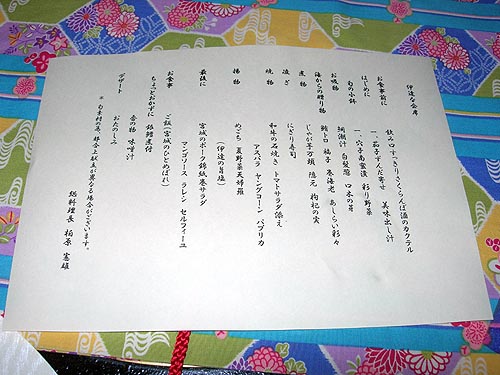 伊達な会席
お食事前に 飲み口すっきりさくらんぼ酒のカクテル
はじめに 一、茄子ずんだ寄せ 美味出し汁
旬の小鉢 一、穴子南蛮漬 彩り野菜
お吸物 鯛潮汁 白髪葱 口木の芽
海からの贈り物 鮪トロ 福子 巻海老 あしらい彩々
煮物 じゃが芋万頭 隠元 枸杞の実
凌ぎ にぎり寿司
焼物 和牛の石焼き トマトサラダ添え
アスパラ ヤングコーン パプリカ
揚物 めごち 夏野菜天婦羅
(伊達の旨塩)
最後に 宮城のポーク錦紙巻サラダ
マンゴソース ラレシ セルフィーユ
お食事 ご飯(宮城のひとめぼれ)
ちょっとおかずに 銀鱈煮付
香の物 味噌汁
デザート おたのしみ
* 旬素材の為、都合上献立が異なる場合がございます。
総料理長 柏原 憲雄